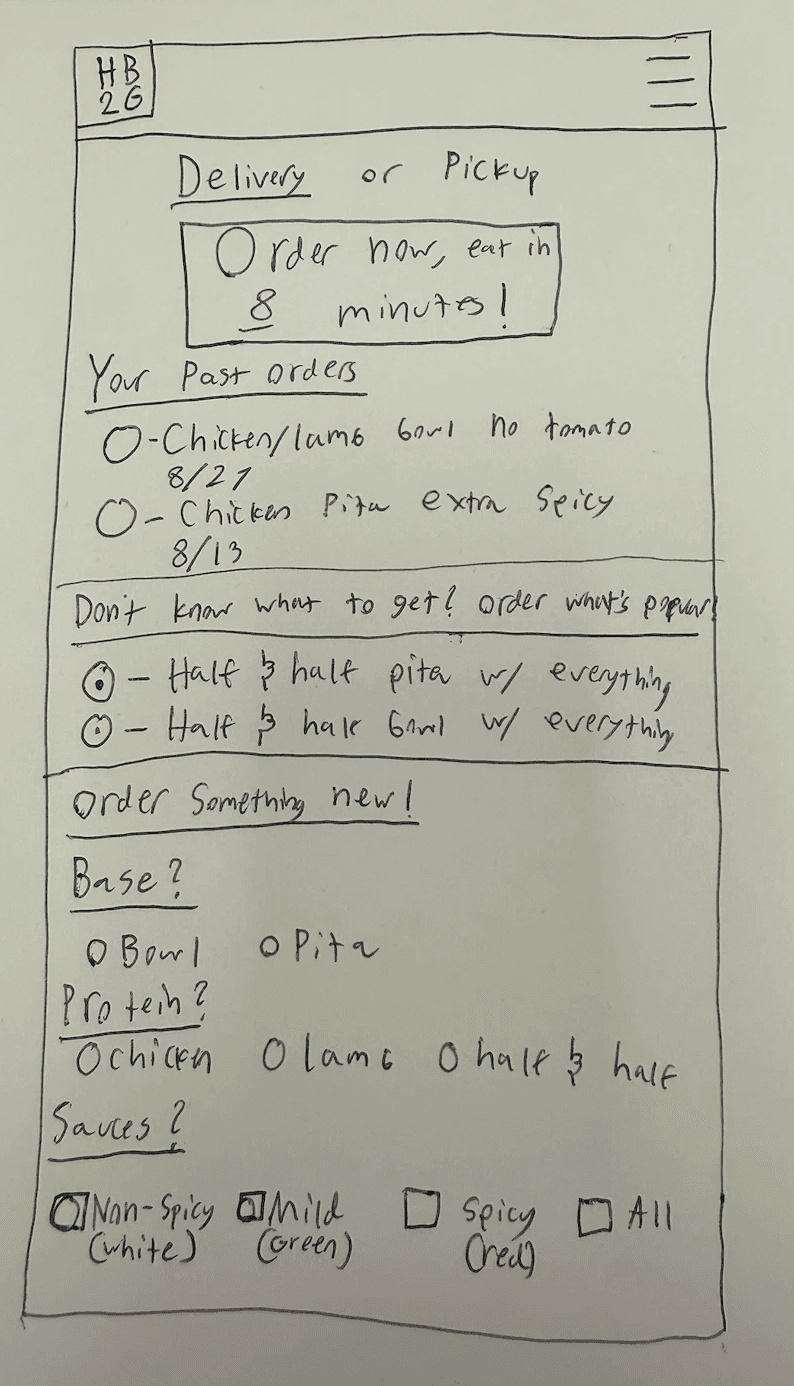 HB
2G
Delivery or Pickup
Order now, eat in
8 minutes!
Your Past orders
-Chicken/lamb bowl no tomato
8/27
- Chicken Pita extra Spicy
8/13
Don't know what to get? Order what's popular!
- Half & half pita w/ everything
- Half & half bowl w/ everything
Order Something new!
Base?
Bowl Pita
Protein?
chicken lamb half & half
Sauces?
Non-Spicy Mild Spicy All
(white) (Green) (red)